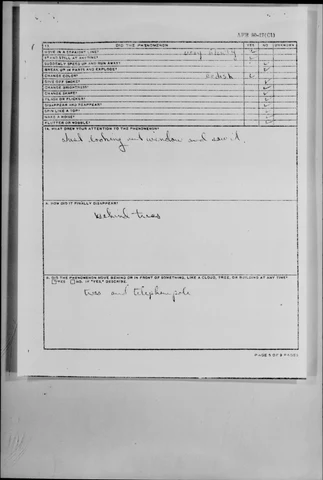 13 DID THE PHENOMENON YES NO UNKNOWN
MOVE IN A STRAIGHT LINE? very slowly
STAND STILL AT ANYTIME?
SUDDENLY SPEED UP AND RUN AWAY?
BREAK UP IN PARTS AND EXPLODE?
CHANGE COLOR? Redish
GIVE OFF SMOKE?
CHANGE BRIGHTNESS?
CHANGE SHAPE?
FLASH OR FLICKER?
DISAPPEAR AND REAPPEAR?
SPIN LIKE A TOP?
MAKE A NOISE?
FLUTTER OR WOBBLE?
14. WHAT DREW YOUR ATTENTION TO THE PHENOMENON?
looking out window and saw it
A. HOW DID IT FINALLY DISAPPEAR?
behind trees
B. DID THE PHENOMENON MOVE BEHIND OR IN FRONT OF SOMETHING, LIKE A CLOUD, TREE, OR BUILDING AT ANY TIME?
YES NO. IF "YES" DESCRIBE.
trees and telephone pole
PAGE 5 OF 9 PAGES